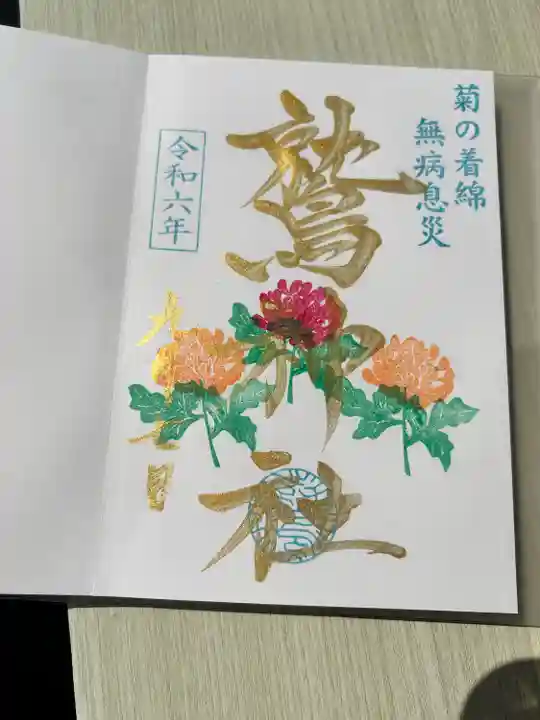 菊の着綿
無病息災
鷲神社
令和六年